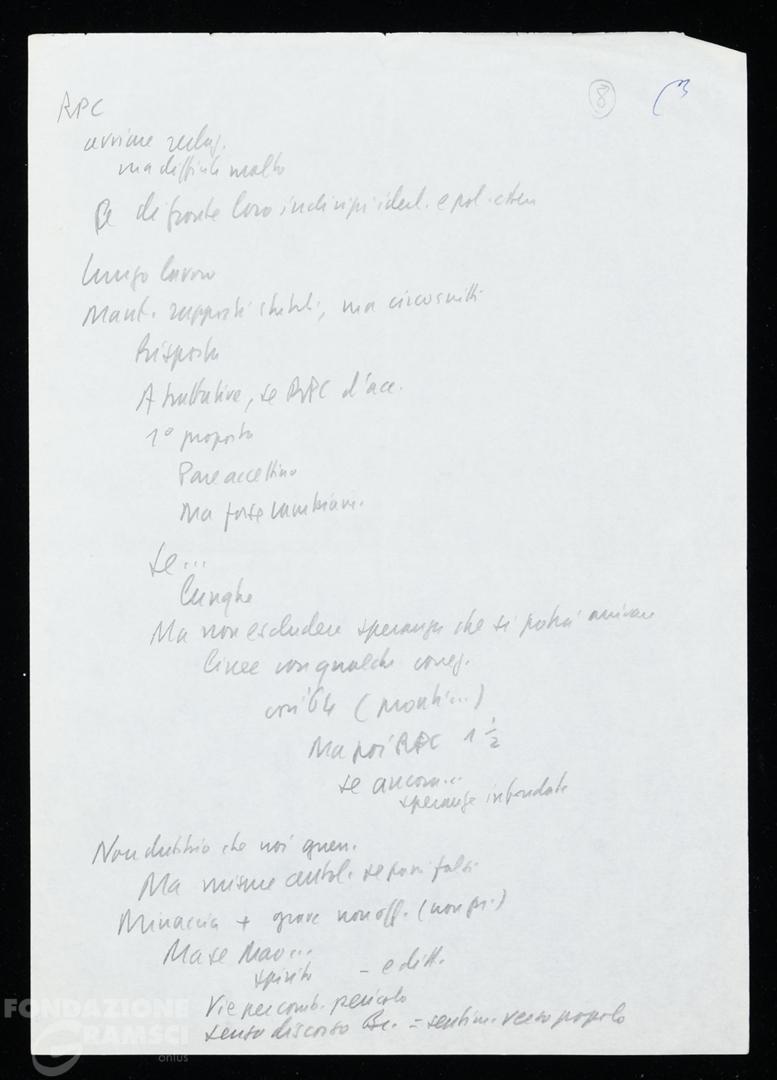 RPC 8
ma difficile molto
di fronte loro indirizzi ideol. e pol. estera
Lungo lavoro
Mant. rapporti statali, ma circoscritti
Risposta
A trattative, se RPC d'acc.
1° proposta
Pare accettino
Ma forse cambiam.
Se...
Lunghe
Ma non escludere speranza che si potrà arrivare
Linee con qualche
così 64 (pronti...)
Ma poi RPC 1 ½
se ancora...
speranze infondate
Non dubbio che noi guerr.
Ma misure cautel. se
Minaccia + grave non off. (non pr.)
Ma se Mao...
spirito = e ditt.
Vie per comb. pericolo
senso discorso Br. = sentim. verso popolo
FONDAZIONE
GRAMSCI
onlus